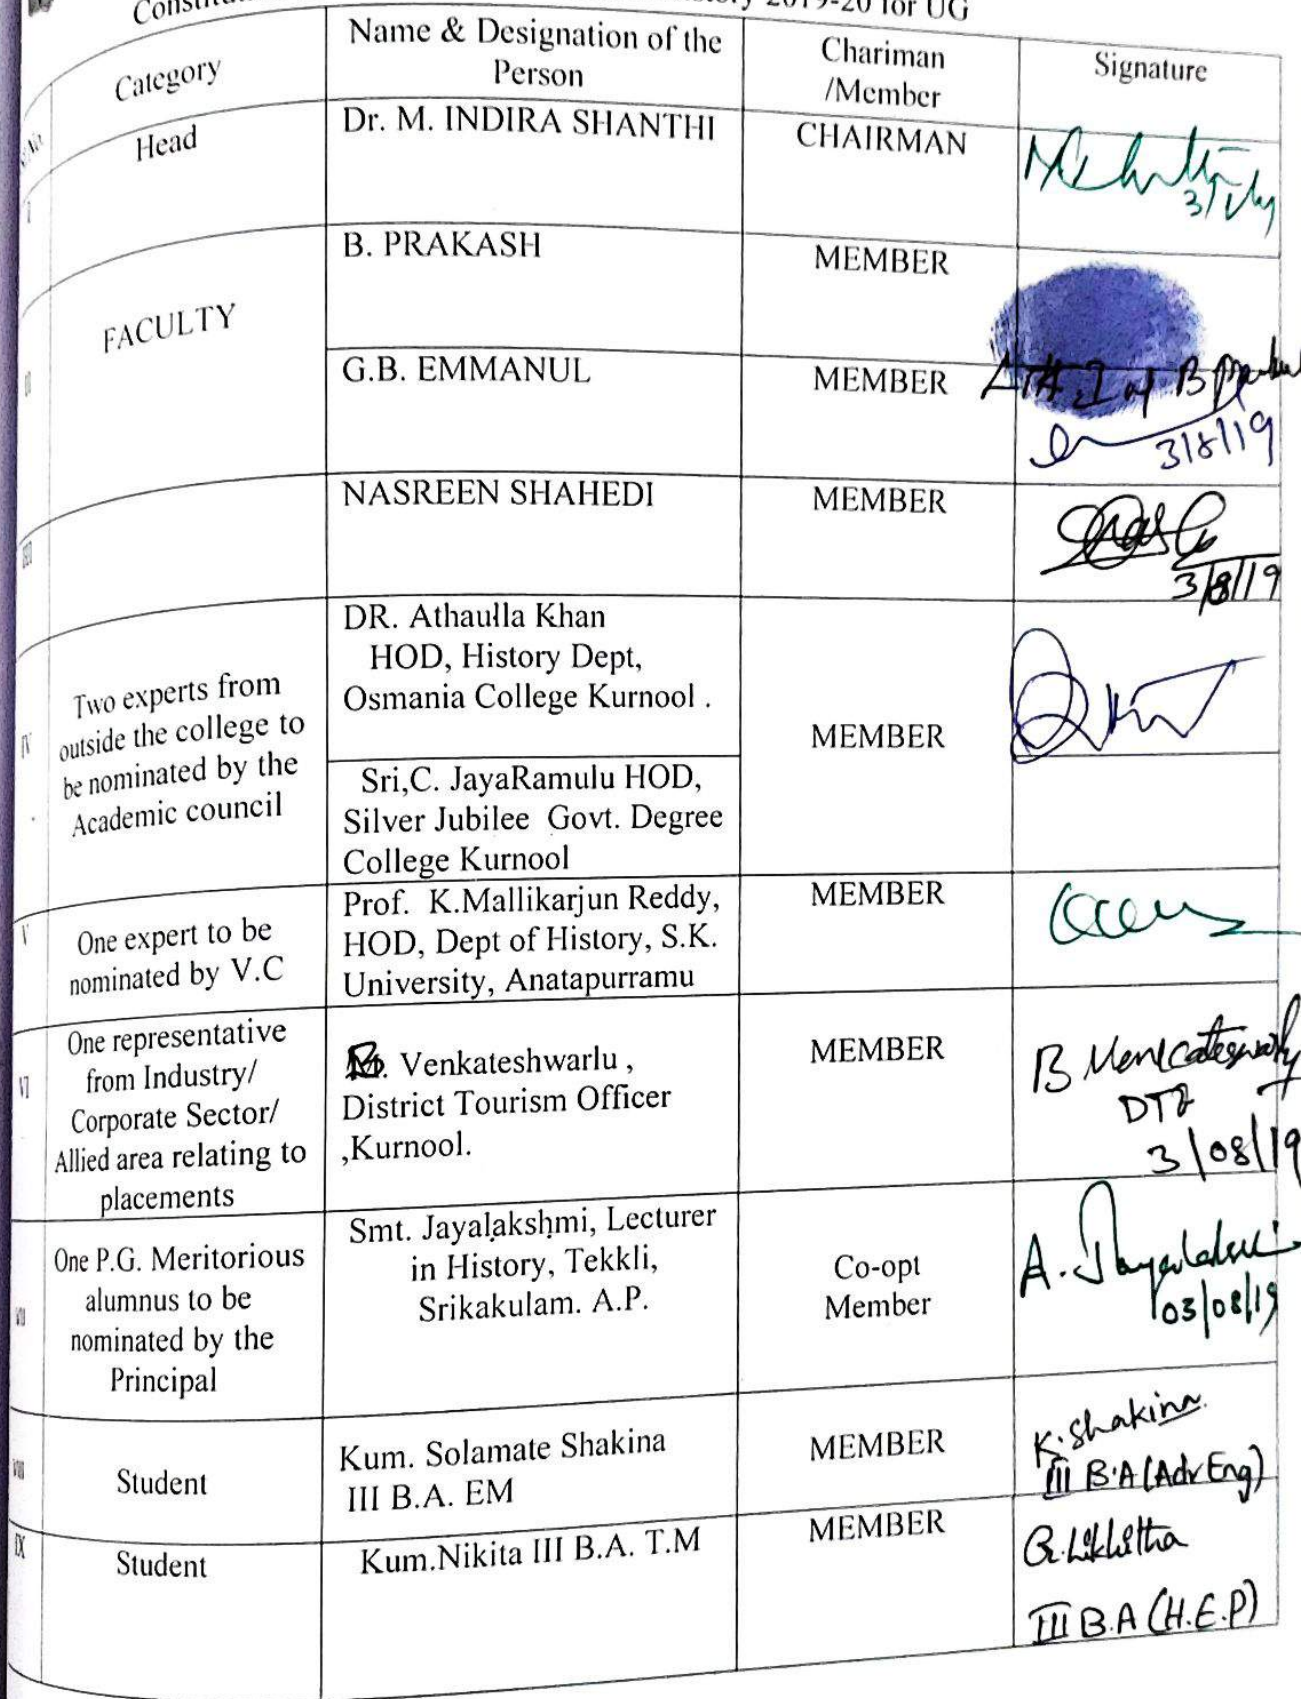 2019-20 for UG
S.No.
Category
Name & Designation of the
Person
Chariman
/Member
Signature
I
Head
Dr. M. INDIRA SHANTHI
CHAIRMAN
II
FACULTY
B. PRAKASH
MEMBER
L.T.I of B Prakash
G.B. EMMANUL
MEMBER
3/8/19
III
NASREEN SHAHEDI
MEMBER
3/8/19
IV
Two experts from
outside the college to
be nominated by the
Academic council
DR. Athaulla Khan
HOD, History Dept,
Osmania College Kurnool .
MEMBER
Sri,C. JayaRamulu HOD,
Silver Jubilee Govt. Degree
College Kurnool
V
One expert to be
nominated by V.C
Prof. K.Mallikarjun Reddy,
HOD, Dept of History, S.K.
University, Anatapurramu
MEMBER
VI
One representative
from Industry/
Corporate Sector/
Allied area relating to
placements
B. Venkateshwarlu ,
District Tourism Officer
,Kurnool.
MEMBER
B Venkateswarlu
3/08/19
VII
One P.G. Meritorious
alumnus to be
nominated by the
Principal
Smt. Jayalakshmi, Lecturer
in History, Tekkli,
Srikakulam. A.P.
Co-opt
Member
A. Jayalakshmi
03/08/19
VIII
Student
Kum. Solamate Shakina
III B.A. EM
MEMBER
K. Shakina
III B.A (Adv Eng)
IX
Student
Kum.Nikita III B.A. T.M
MEMBER
G. Likhitha
III B.A (H.E.P)